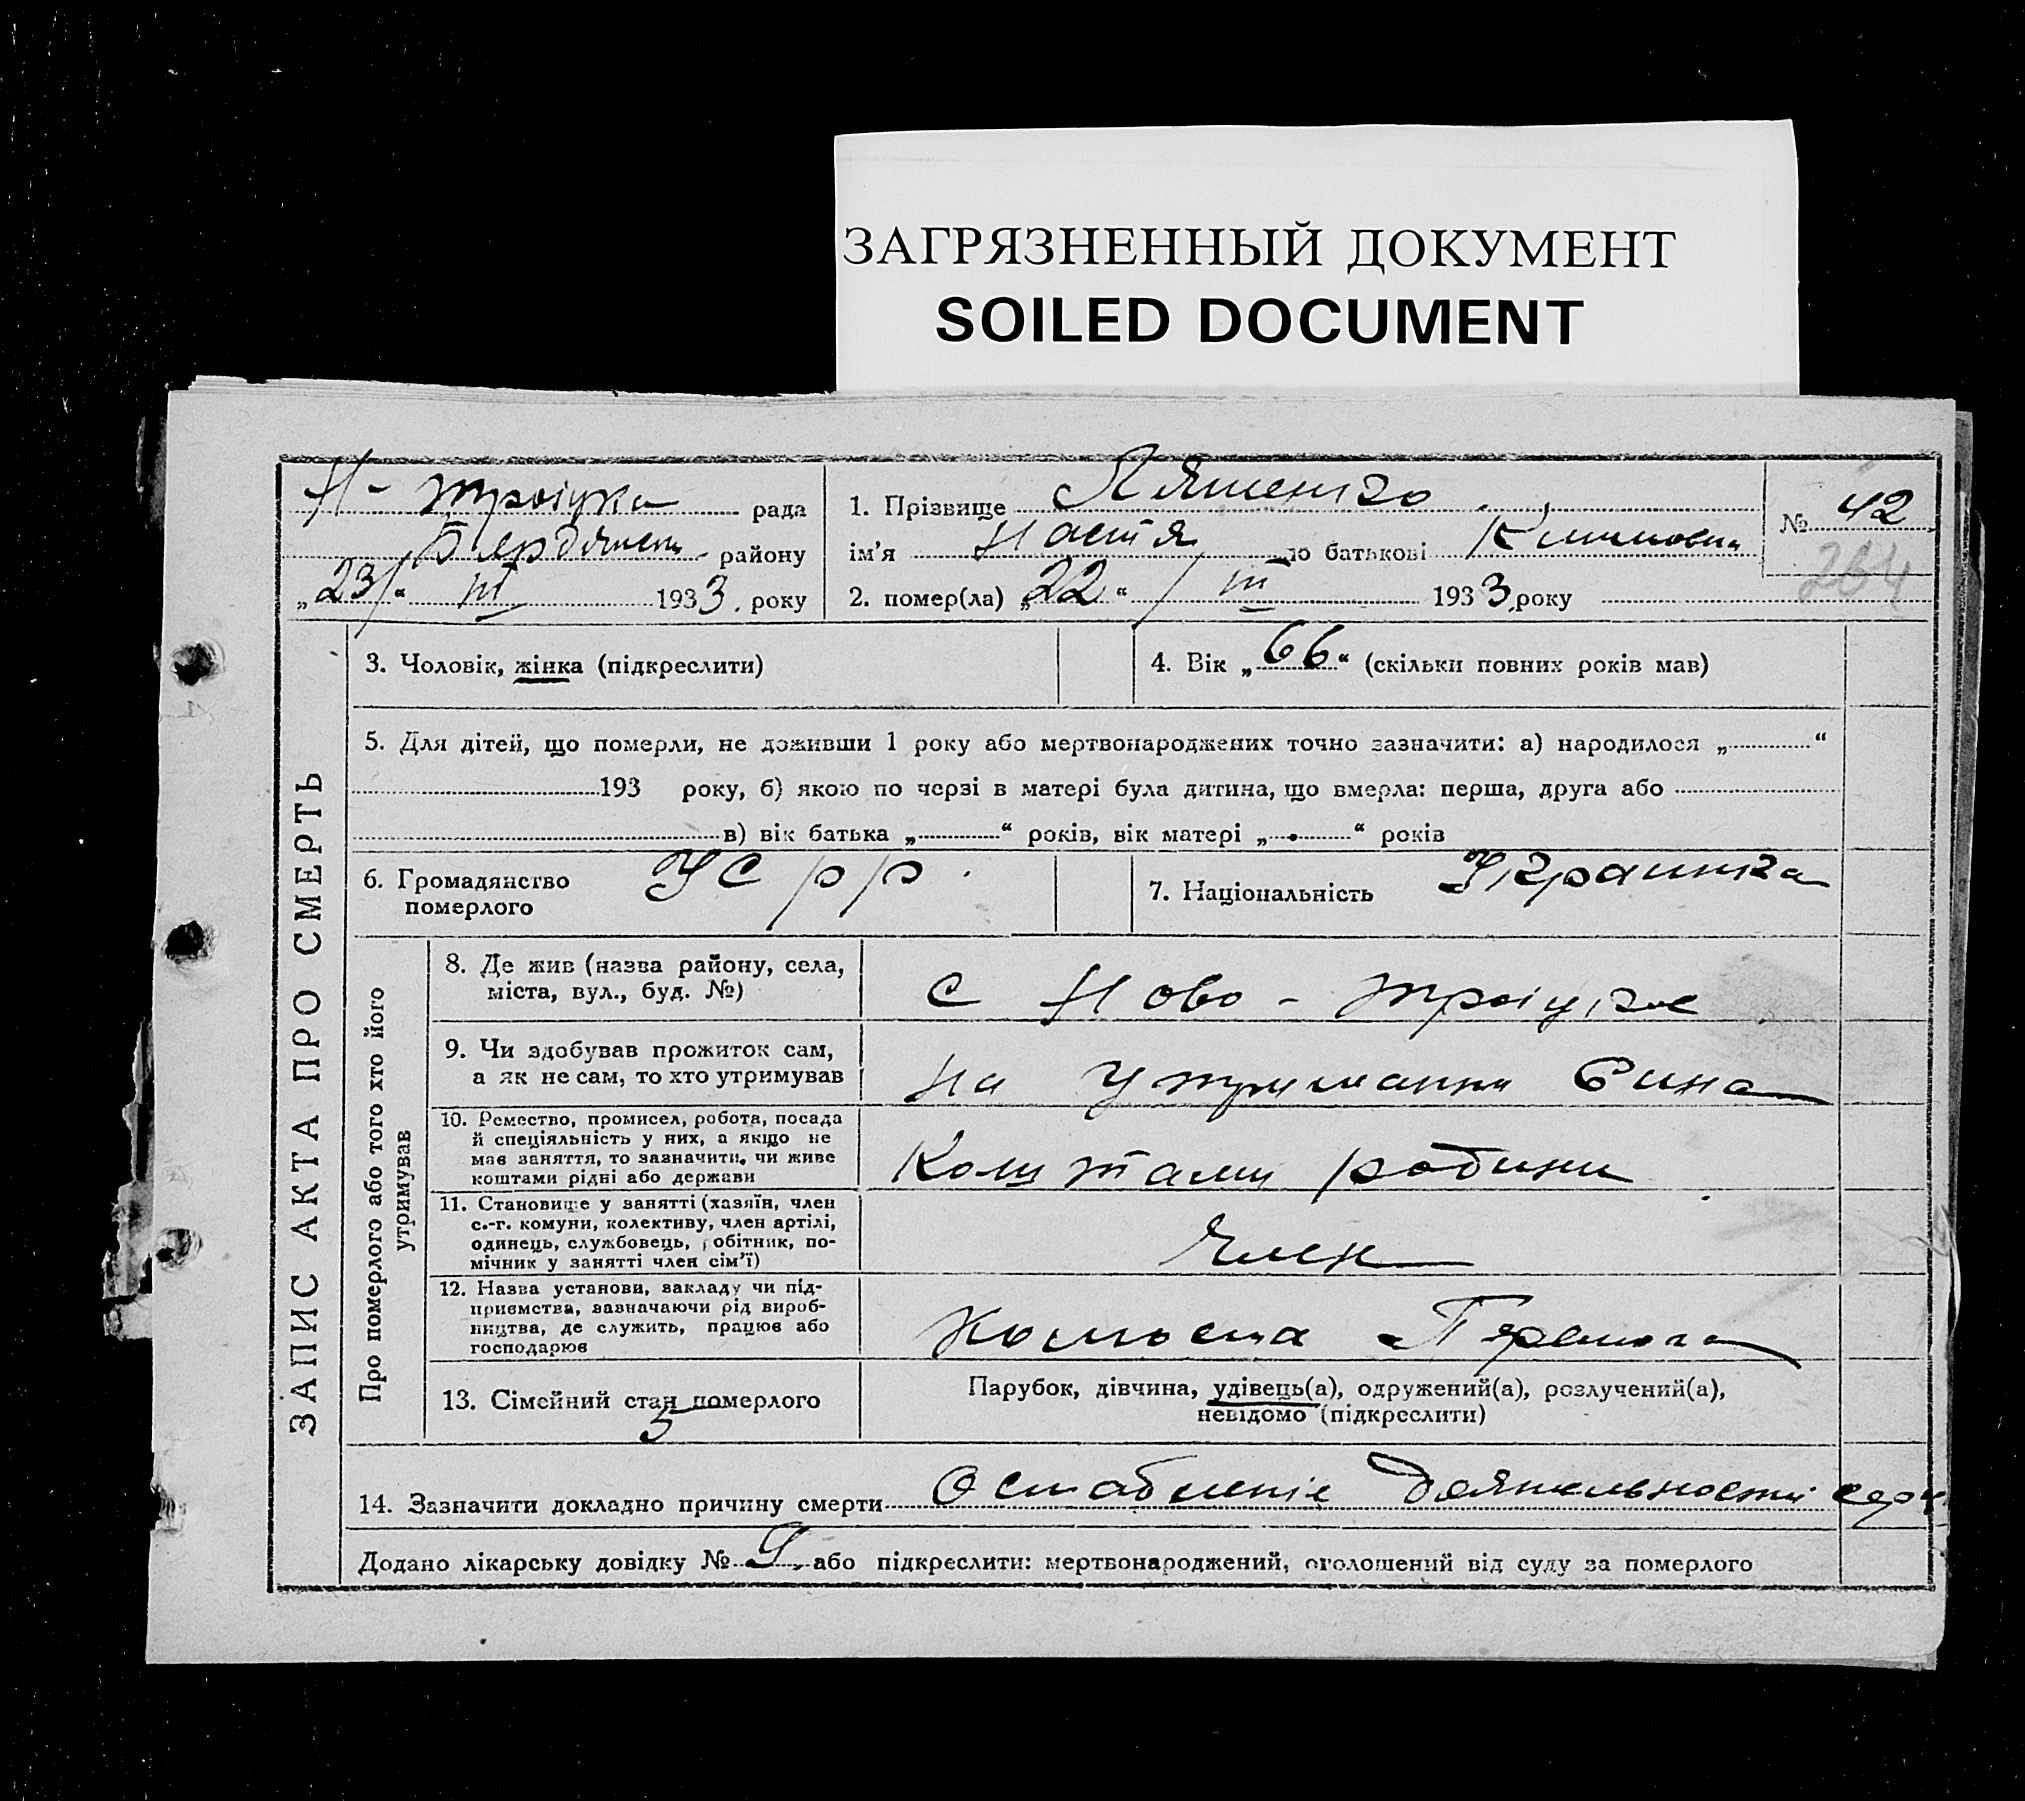 ЗАГРЯЗНЕННЫЙ ДОКУМЕНТ
SOILED DOCUMENT
Н- Троіцка рада
Бердянськ району
„23“ III 1933 року
1. Прізвище Ляшенко
ім'я Настя по батькові
2. помер(ла) „22“ III 1933 року
№ 42
264
ЗАПИС АКТА ПРО СМЕРТЬ
3. Чоловік, жінка (підкреслити)
4. Вік „66“ (скільки повних років мав)
5. Для дітей, що померли, не доживши 1 року або мертвонароджених точно зазначити: а) народилося „ “
193 року, б) якою по черзі в матері була дитина, що вмерла: перша, друга або
в) вік батька „ “ років, вік матері „ “ років
6. Громадянство
померлого
УСРР
7. Національність Українка
Про померлого або того хто його
утримував
8. Де жив (назва району, села,
міста, вул., буд. №)
с Ново-Троіцке
9. Чи здобував прожиток сам,
а як не сам, то хто утримував
На утриманни Сина
10. Ремество, промисел, робота, посада
й спеціяльність у них, а якщо не
має заняття, то зазначити, чи живе
коштами рідні або держави
Коштами родини
11. Становище у занятті (хазяїн, член
с.-г. комуни, колективу, член артілі,
одинець, службовець, робітник, по-
мічник у занятті член сім'ї)
Член
12. Назва установи, закладу чи під-
приємства, зазначаючи рід вироб-
ництва, де служить, працює або
господарює
13. Сімейний стан померлого
5
Парубок, дівчина, удівець(а), одружений(а), розлучений(а),
невідомо (підкреслити)
14. Зазначити докладно причину смерти Ослабленіе деятельности серц
Додано лікарську довідку № 9 або підкреслити: мертвонароджений, оголошений від суду за померлого